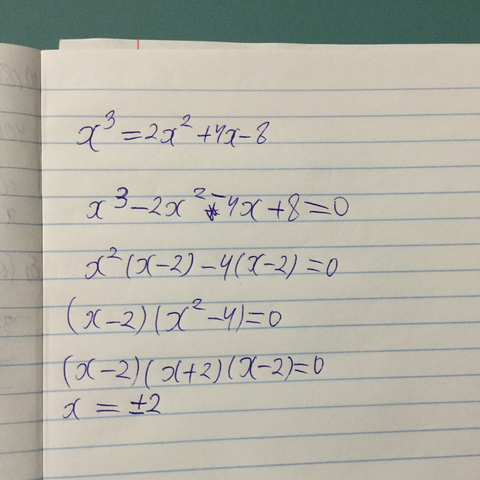 x³ = 2x² + 4x - 8
x³ - 2x² - 4x + 8 = 0
x²(x - 2) - 4(x - 2) = 0
(x - 2)(x² - 4) = 0
(x - 2)(x + 2)(x - 2) = 0
x = ±2